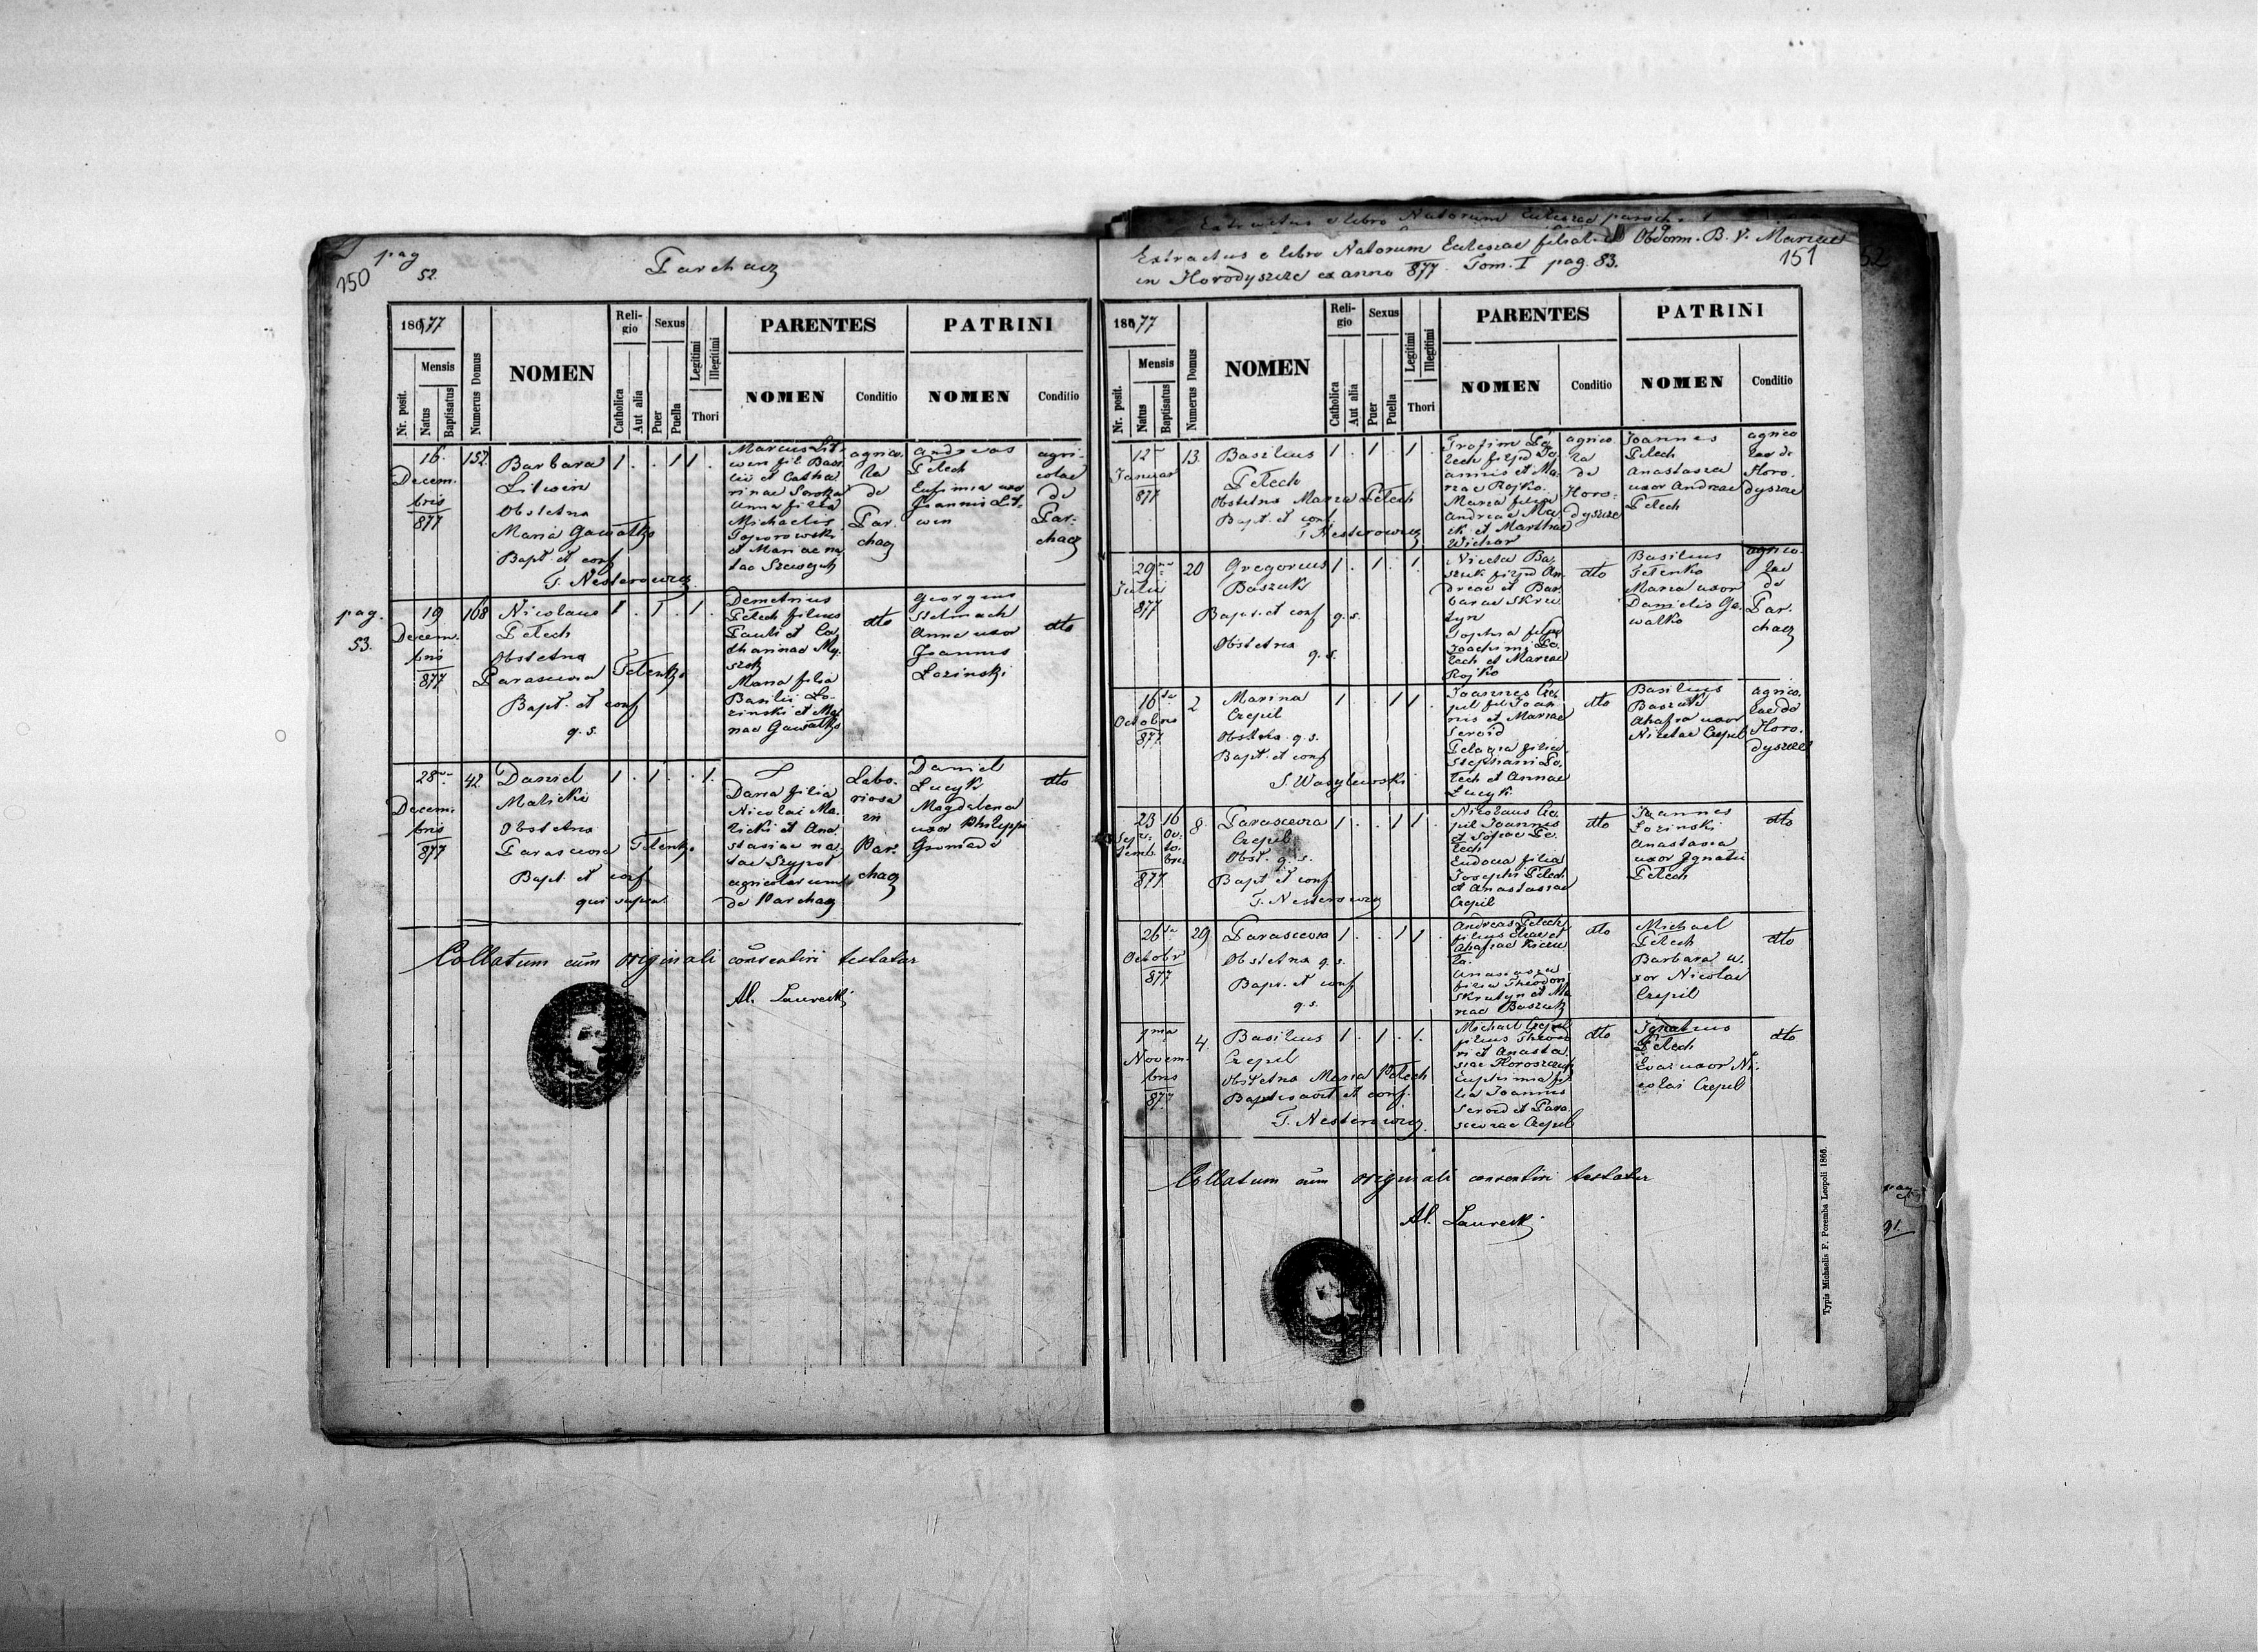 pag
150
52.
Parchacz
1877
Nr. posit.
Mensis
Natus
Baptisatus
Numerus Domus
NOMEN
Reli-
gio
Catholica
Aut alia
Sexus
Puer
Puella
Legitimi
Illegitimi
Thori
PARENTES
NOMEN
Conditio
PATRINI
NOMEN
Conditio
16.
Decem-
bris
877
152.
Barbara
Litwin
Obstetrix
Maria Gawałko
Bapt. et conf
T. Nesterowicz
1 . . 1 1 .
Marcus Lit-
win fil Basi-
lii et Catha-
rinae Soroka
Anna filia
Michaelis
Toporowski
et Mariae na-
tae Szewczyk
agrico-
la
de
Par-
chacz
Andreas
Pelech
Eufimia uxor
Joannis Lit-
win
agri-
colae
de
Par-
chacz
pag.
53.
19
Decem-
bris
877
168
Nicolaus
Pelech
Obstetrix
Parascevia Telenko
Bapt. et conf
q. s.
1 . 1 . 1 .
Demetrius
Pelech filius
Pauli et Ca-
tharinae My-
szok
Maria filia
Basilii Ło-
zinski et Ma-
riae Gawałko
dto
Georgius
Stelmach
Anna uxor
Joannis
Łozinski
dto
28
Decem-
bris
877
42.
Daniel
Malicki
Obstetrix
Parascevia Telenko
Bapt. et conf.
qui supra.
1 . 1 . . 1.
Daria filia
Nicolai Ma-
licki et Ana-
stasiae na-
tae Szypot
agricolarum
de Parchacz
Labo-
riosa
in
Par-
chacz
Daniel
Łucyk
Magdalena
uxor Philippi
Gromada
dto
Collatum cum originali consentiri testatur
Al. Laurecki
Extractus e libro Natorum Eclesiae filialis Obdorm. B. V. Mariae
in Horodyszcze ex anno 877. Tom. I pag. 83.
151
52
1877
Nr. posit.
Mensis
Natus
Baptisatus
Numerus Domus
NOMEN
Reli-
gio
Catholica
Aut alia
Sexus
Puer
Puella
Legitimi
Illegitimi
Thori
PARENTES
NOMEN
Conditio
PATRINI
NOMEN
Conditio
12
Januar
877
13.
Basilius
Pelech
Obstetrix Maria Pelech
Bapt. et conf
T Nesterowicz
1 . 1 . 1 .
Trofim Pe-
lech filius Jo-
annis et Ma-
riae Rojko.
Maria filia
Andreae
et Marthae
Wichor
agrico-
la
de
Horo-
dyszcze
Joannes
Pelech
Anastasia
uxor Andreae
Pelech
agrico-
lae de
Horo-
dyszcze
29
Julii
877
20
Gregorius
Baszuk
Bapt. et conf q. s.
Obstetrix
q. s.
1 . 1 . 1.
Niceta Ba-
szuk filius An-
dreae et Bar-
barae Skru-
tyn
Sophia filia
Joachimi Pe-
lech et Mariae
Rojko
dto
Basilius
Telenko
Maria uxor
Danielis Ga-
wałko
agrico-
lae
de
Par-
chacz
16
Octobris
877
2
Marina
Czepil
Obstetrix q. s.
Bapt. et conf
S. Wasylewski
1 . . 1 1
Joannes Cze-
pil fil Joan-
nis et Mariae
Seroid
Pelagia filia
Stephani Pe-
lech et Annae
Łucyk.
dto
Basilius
Baszuk
Ahafia uxor
Nicetae Czepil
agrico-
lae de
Horo-
dyszcze
23
Sep-
temb.
16
Oc-
to-
bris
877
8
Parascevia
Czepil
Obst. q. s.
Bapt et conf
T. Nesterowicz
1 . . 1 1
Nicolaus Cze-
pil Joannes
et Sofiae Pe-
lech
Eudocia filia
Josephi Pelech
et Anastasiae
Czepil
dto
Joannes
Łozinski
Anastasia
uxor Ignatii
Pelech
dto
26
Octobr
877
29
Parascevia
Obstetrix q. s.
Bapt. et conf
q. s.
1 . . 1 1 .
Andreas Pelech
filius Eliae et
Ahafiae
Anastasia
filia Theodori
Skrutyn et Ma-
riae Baszuk
dto
Michael
Pelech
Barbara u-
xor Nicolai
Czepil
dto
1ma
Novem-
bris
877
4.
Basilius
Czepil
Obstetrix Maria Pelech
Baptisavit et conf.
T. Nesterowicz
1 . 1 . 1.
Michael Czepil
filius Theodo-
ri et Anasta-
siae
Euphimia fi-
lia Joannis
Seroid et Para-
sceviae Czepil
dto
Ignatius
Pelech
Eva uxor Ni-
colai Czepil
dto
Collatum cum originali consentiri testatur
Al. Laurecki
Typis Michaelis F. Poremba Leopoli 1866.
pag
91.